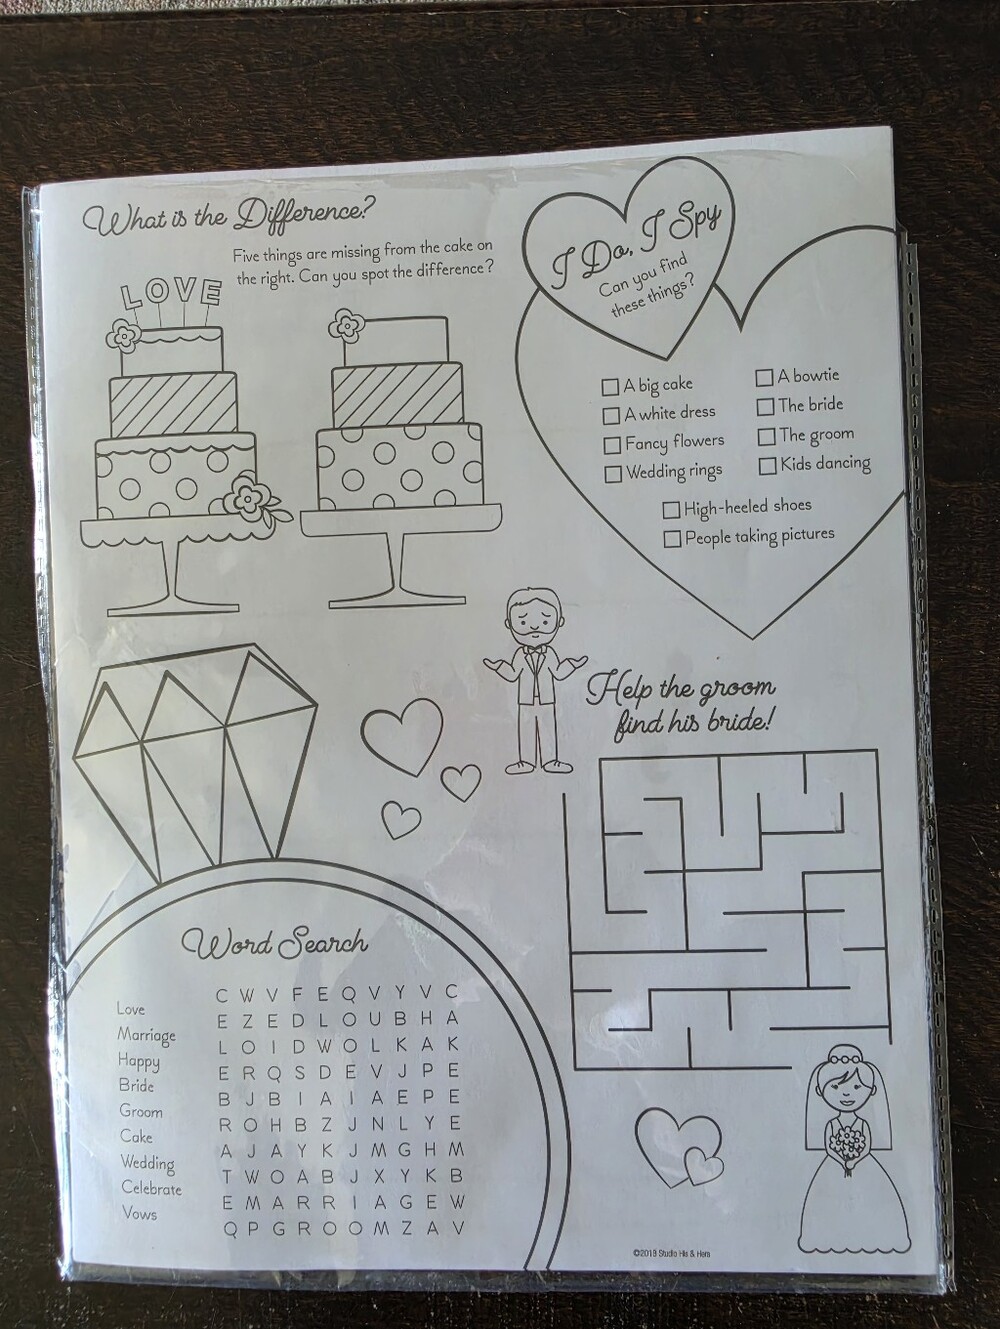 What is the Difference?
Five things are missing from the cake on
the right. Can you spot the difference?
LOVE
I Do, I Spy
Can you find
these things?
A big cake
A white dress
Fancy flowers
Wedding rings
A bowtie
The bride
The groom
Kids dancing
High-heeled shoes
People taking pictures
Help the groom
find his bride!
Word Search
Love
Marriage
Happy
Bride
Groom
Cake
Wedding
Celebrate
Vows
C W V F E Q V Y V C
E Z E D L O U B H A
L O I D W O L K A K
E R Q S D E V J P E
B J B I A I A E P E
R O H B Z J N L Y E
A J A Y K J M G H M
T W O A B J X Y K B
E M A R R I A G E W
Q P G R O O M Z A V
©2018 Studio His & Hers